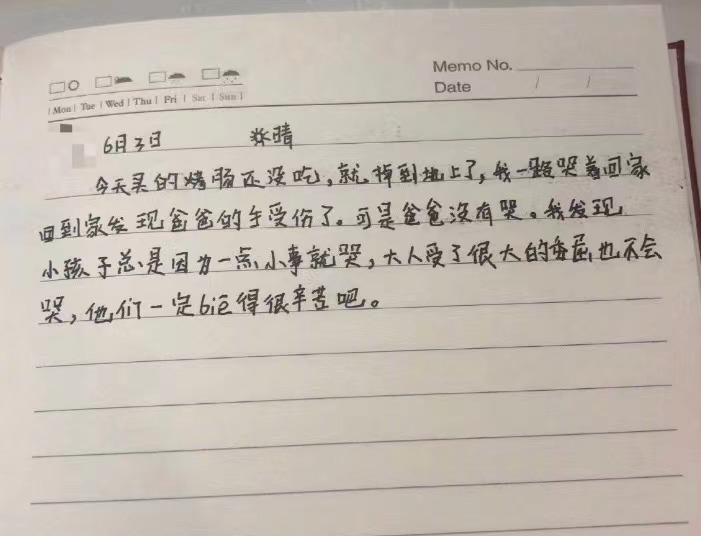 Memo No.
Date / /
Mon Tue Wed Thu Fri Sat Sun
6月3日
晴
今天买的烤肠还没吃，就掉到地上了，我一路哭着回家
回到家发现爸爸的手受伤了。可是爸爸没有哭。我发现
小孩子总是因为一点小事就哭，大人受了很大的委屈也不会
哭，他们一定biē得很辛苦吧。